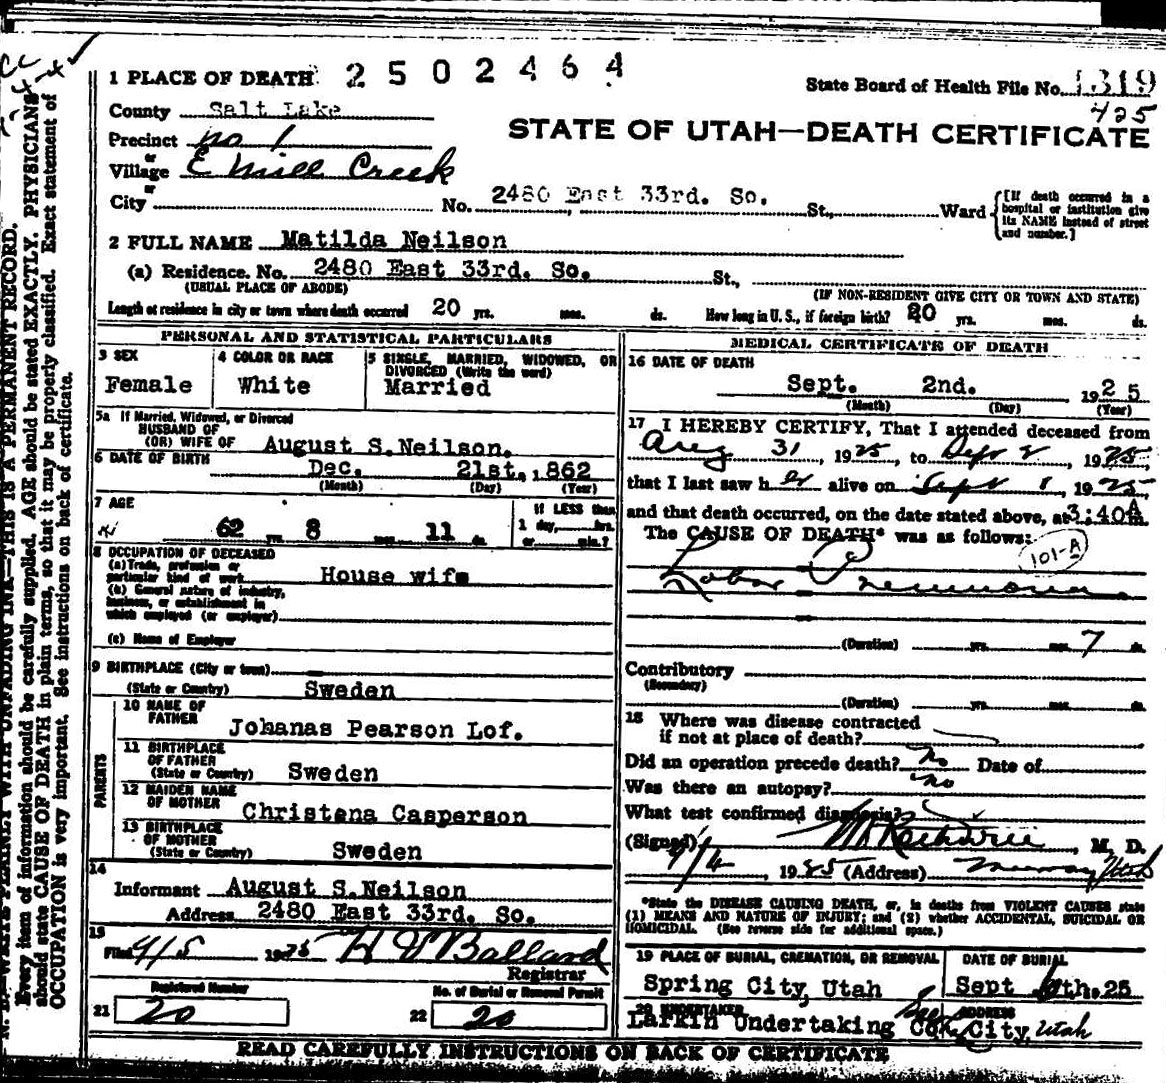 1 PLACE OF DEATH 2502464
State Board of Health File No. 1319
425
County Salt Lake
STATE OF UTAH—DEATH CERTIFICATE
Precinct no 1
or
Village E Mill Creek
or
City No. 2480 East 33rd. So. St., Ward
[If death occurred in a hospital or institution give its NAME instead of street and number.]
2 FULL NAME Matilda Neilson
(a) Residence. No. 2480 East 33rd. So. St.,
(USUAL PLACE OF ABODE) (IF NON-RESIDENT GIVE CITY OR TOWN AND STATE)
Length of residence in city or town where death occurred 20 yrs. mos. ds. How long in U. S., if foreign birth? yrs. mos. ds.
PERSONAL AND STATISTICAL PARTICULARS
3 SEX
Female
4 COLOR OR RACE
White
5 SINGLE, MARRIED, WIDOWED, OR
DIVORCED (Write the word)
Married
5a If Married, Widowed, or Divorced
HUSBAND OF
(OR) WIFE OF August S.Neilson.
6 DATE OF BIRTH Dec. 21st, 1862
(Month) (Day) (Year)
7 AGE
62 yrs. 8 mos. 11 ds.
If LESS than
1 day, hrs.
or min.?
8 OCCUPATION OF DECEASED
(a) Trade, profession or
particular kind of work House wife
(b) General nature of industry,
business, or establishment in
which employed (or employer)
(c) Name of Employer
9 BIRTHPLACE (City or town)
(State or Country) Sweden
PARENTS
10 NAME OF
FATHER Johanas Pearson Lof.
11 BIRTHPLACE
OF FATHER
(State or Country) Sweden
12 MAIDEN NAME
OF MOTHER Christena Casperson
13 BIRTHPLACE
OF MOTHER
(State or Country) Sweden
14
Informant August S.Neilson
Address 2480 East 33rd. So.
15
Filed 9/5 1925 H V Ballard
Registrar
Registered Number
21 20
No. of Burial or Removal Permit
22 20
MEDICAL CERTIFICATE OF DEATH
16 DATE OF DEATH
Sept. 2nd. 1925
(Month) (Day) (Year)
17 I HEREBY CERTIFY, That I attended deceased from
Aug 31, 1925, to Sept 2, 1925,
that I last saw her alive on Sept 1, 1925
and that death occurred, on the date stated above, at 3:40A m.
The CAUSE OF DEATH* was as follows:
101-A
Lobar Pneumonia
(Duration) yrs. mos. 7 ds.
Contributory
(Secondary)
(Duration) yrs. mos. ds.
18 Where was disease contracted
if not at place of death?
Did an operation precede death? no Date of
Was there an autopsy? no
What test confirmed diagnosis?
(Signed) , M. D.
9/4, 1925 (Address) Murray Utah
*State the DISEASE CAUSING DEATH, or, in deaths from VIOLENT CAUSES state
(1) MEANS AND NATURE OF INJURY; and (2) whether ACCIDENTAL, SUICIDAL OR
HOMICIDAL. (See reverse side for additional space.)
19 PLACE OF BURIAL, CREMATION, OR REMOVAL
Spring City, Utah
DATE OF BURIAL
Sept 6th. 25
20 UNDERTAKER ADDRESS
Larkin Undertaking Co. City, Utah
READ CAREFULLY INSTRUCTIONS ON BACK OF CERTIFICATE
N. B.—WRITE PLAINLY WITH UNFADING INK—THIS IS A PERMANENT RECORD.
Every item of information should be carefully supplied. AGE should be stated EXACTLY. PHYSICIANS
should state CAUSE OF DEATH in plain terms, so that it may be properly classified. Exact statement of
OCCUPATION is very important. See instructions on back of certificate.